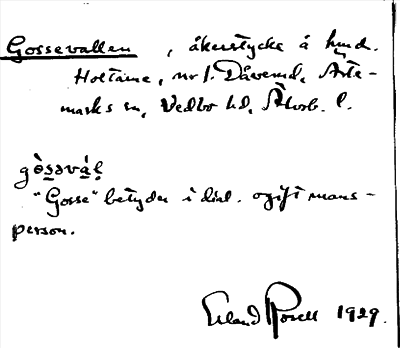 Gossevallen, åkerstycke å hmd.
Holtane, nr 1. Dåverud, Årte-
marks sn, Vedbo hd, Älvsb. l.
gòs̱əvál
"Gosse" betyder i dial. ogift mans-
person.
Erland Rosell 1929.